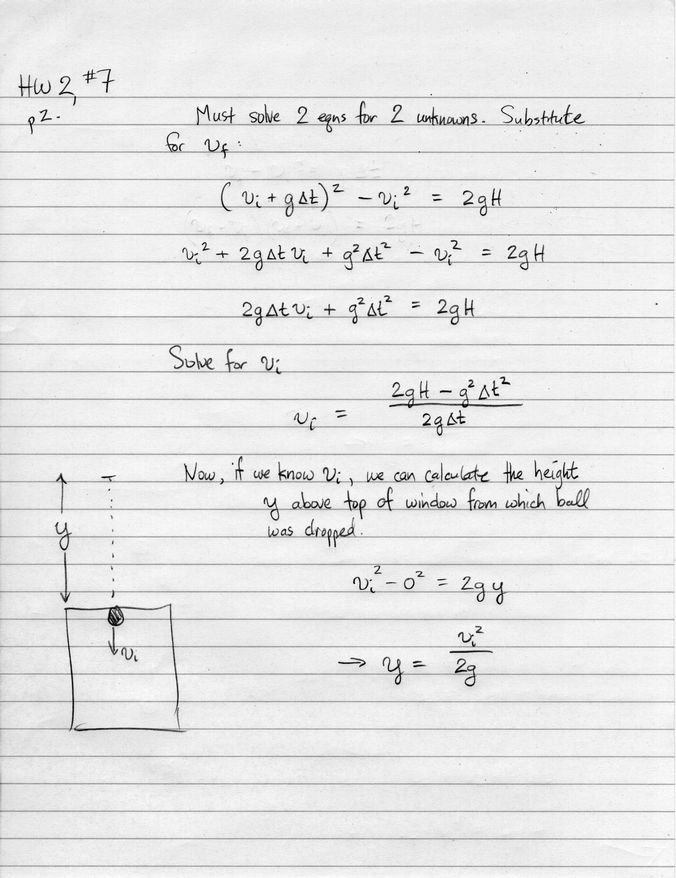 HW 2, #7
p 2.
Must solve 2 eqns for 2 unknowns. Substitute
for v_f :
(v_i + gΔt)² - v_i² = 2gH
v_i² + 2gΔt v_i + g²Δt² - v_i² = 2gH
2gΔt v_i + g²Δt² = 2gH
Solve for v_i
v_i = (2gH - g²Δt²) / (2gΔt)
Now, if we know v_i, we can calculate the height
y above top of window from which ball
was dropped.
y
v_i² - 0² = 2gy
v_i
→ y = v_i² / 2g